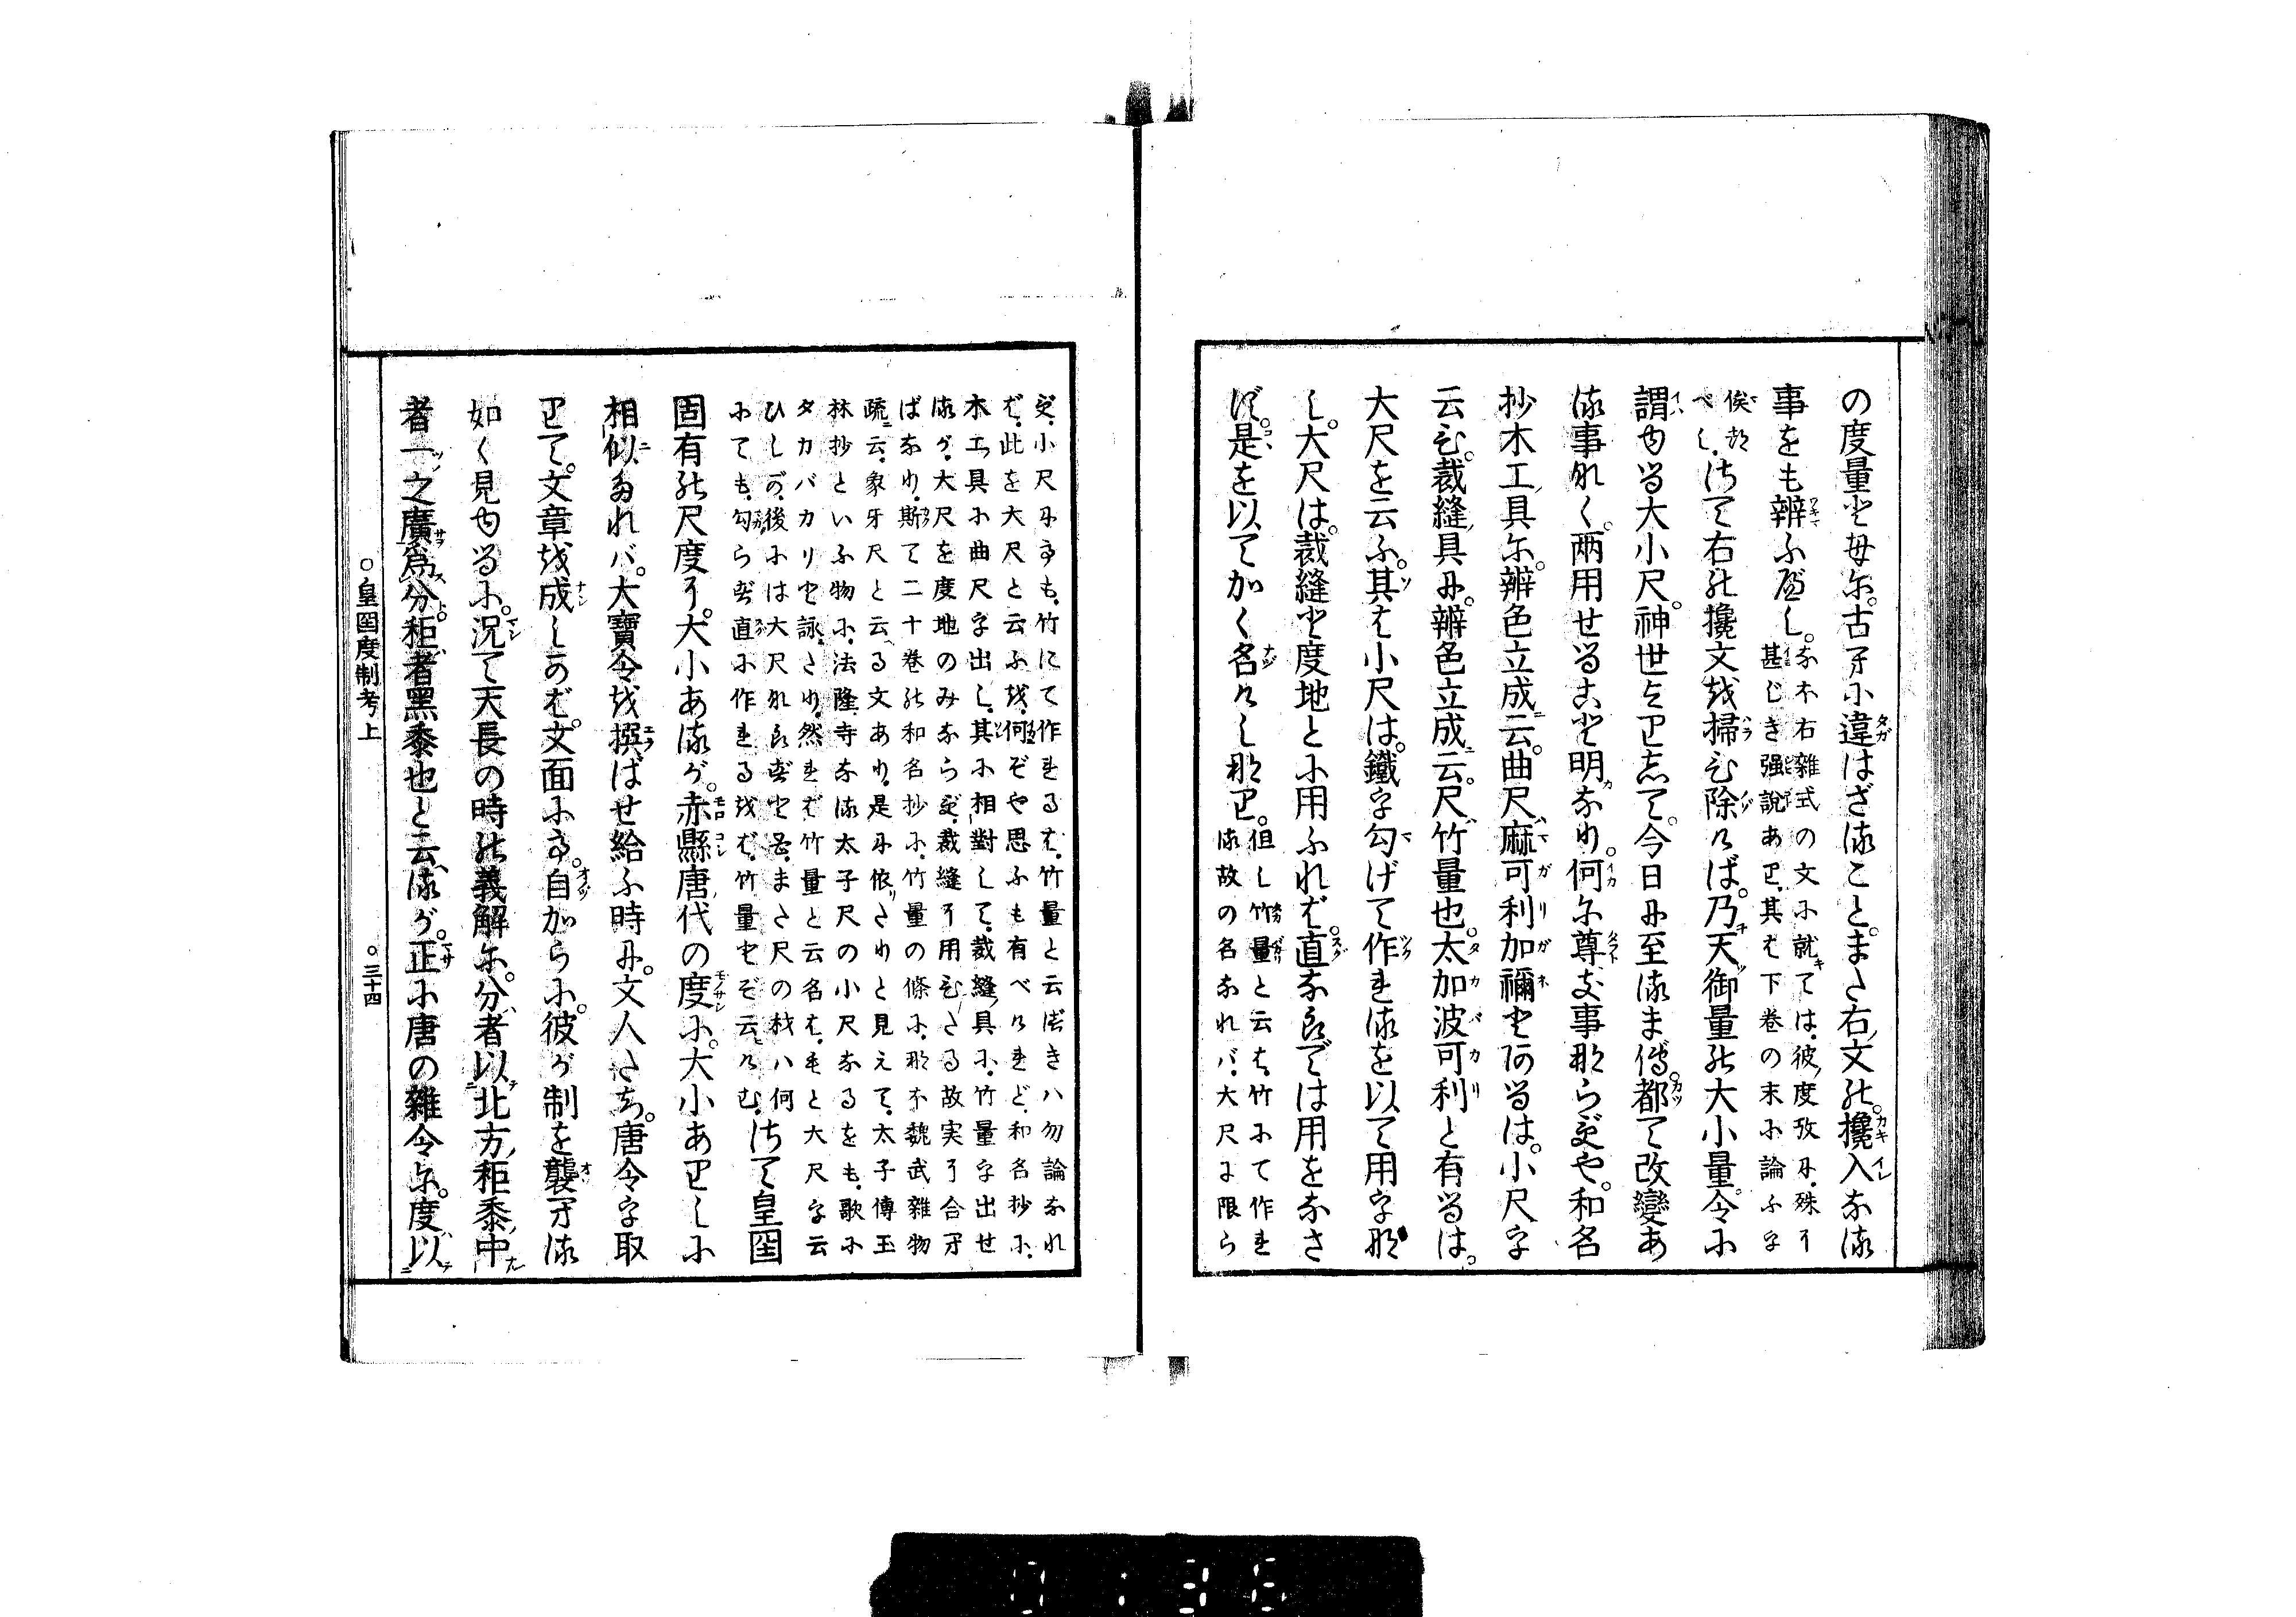 の度量と毎に。古へに違はざることまた右ノ文の。攙入なる
事をも辨ふべし。なほ右雜式の文に就ては。彼ノ度攷に。殊に
甚じき强說あり。其は下巻の末に論ふを
俟べし。さて右の攙文を掃ひ除けば。乃天御量の大小量。令に
謂ゆる大小尺。神世よりして。今日に至るまで。都て改變あ
る事なく。兩用せること明なり。何に尊き事ならずや。和名
抄木工ノ具に。辨色立成ニ云。曲尺ハ麻可利加禰とあるは。小尺を
云ひ。裁縫ノ具に。辨色立成ニ云。尺ハ竹量也。太加波可利と有るは。
大尺を云ふ。其は小尺は。鐵を勾げて作れるを以て用を那
し。大尺は。裁縫と度地とに用ふれば。直ならでは用をなさ
ず。是を以てかく名けし那り。但し竹量と云は。竹にて作れ
る故の名なれバ。大尺に限ら
ず。小尺にまも。竹にて作れるは。竹量と云べきハ勿論なれ
ど。此を大尺と云ふを。何ぞや思ふも有べけれど。和名抄に。
木工ノ具に曲尺を出し。其に相對して。裁縫ノ具に。竹量を出せ
るが。大尺を度地のみならず。裁縫に用ひたる故実に合へ
ばなり。斯て二十巻の和名抄に。竹量の條に。那ほ魏武雜物
疏ニ云。象牙尺と云へる文あり。是に依りたりと見えて。太子傳玉
林抄といふ物に。法隆寺なる太子尺の小尺なるをも。歌に
タカバカリと詠たり。然れど竹量と云名は。もと大尺を云
ひしが。後には大尺ならずとも。また尺の材ハ何
にても。勾らず直に作れるをば。竹量とぞ云けむ。さて皇国
固有の尺度に。大小あるが。赤縣唐ノ代の度に。大小ありしに
相似たれバ。大寶令を撰ばせ給ふ時に。文人たち。唐令を取
りて。文章を成しかば。文面にま。自からに。彼が制を襲へる
如く見ゆるに。況て天長の時の義解に。分者以北方ノ秬黍ノ中
者一之廣爲分秬者黑黍也と云へるが。正に唐の雜令に。度ハ以
○皇国度制考上
○三十四